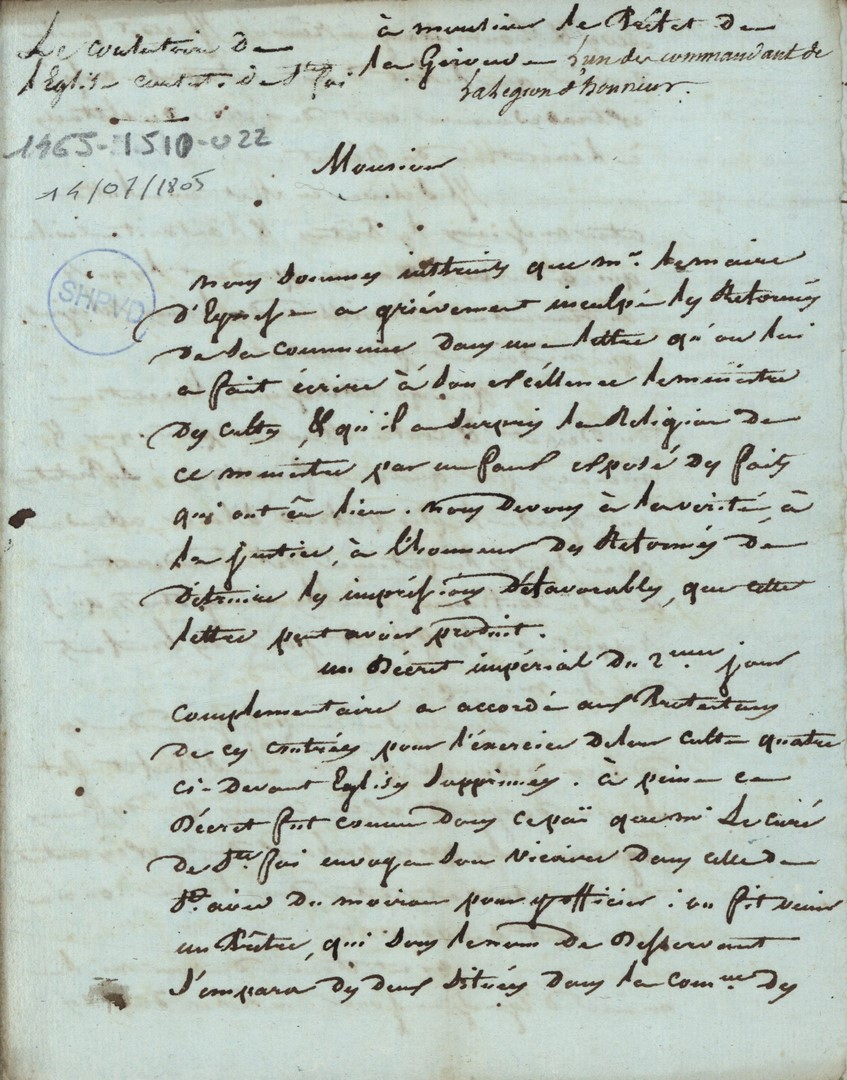 Le consistoire de
l'Eglise consist. de Ste foi
à monsieur le Préfet de
la Gironde l'un des commandant de
la legion d'honneur.
1465-1510-022
14/07/1805
Monsieur
SHPVD
nous sommes instruits que mr. le maire
d'Eynesse a grièvement inculpé les Réformés
de sa commune dans une lettre qu'on lui
a fait écrire à son excéllence le ministre
des cultes, & qu'il a surpris la Religion de
ce ministre par un faux exposé des faits
qui ont eû lieu. nous devons à la verité, à
la justice, à l'honneur des Réformés de
détruire les impréssions défavorables, que cette
lettre peut avoir produit.
un Décret impérial du 2eme jour
complementaire a accordé aux Protestans
de ces contrées pour l'éxercice de leur culte quatre
ci-devant Eglises supprimées. à peine ce
Décret fut connu dans ce païs que mr. Le curé
de Ste foi envoya son vicaire dans celle de
St. avit du moiron pour y officier : on fit venir
un Prêtre, qui sous le nom de Desservant
s'empara des deux situées dans la comune des